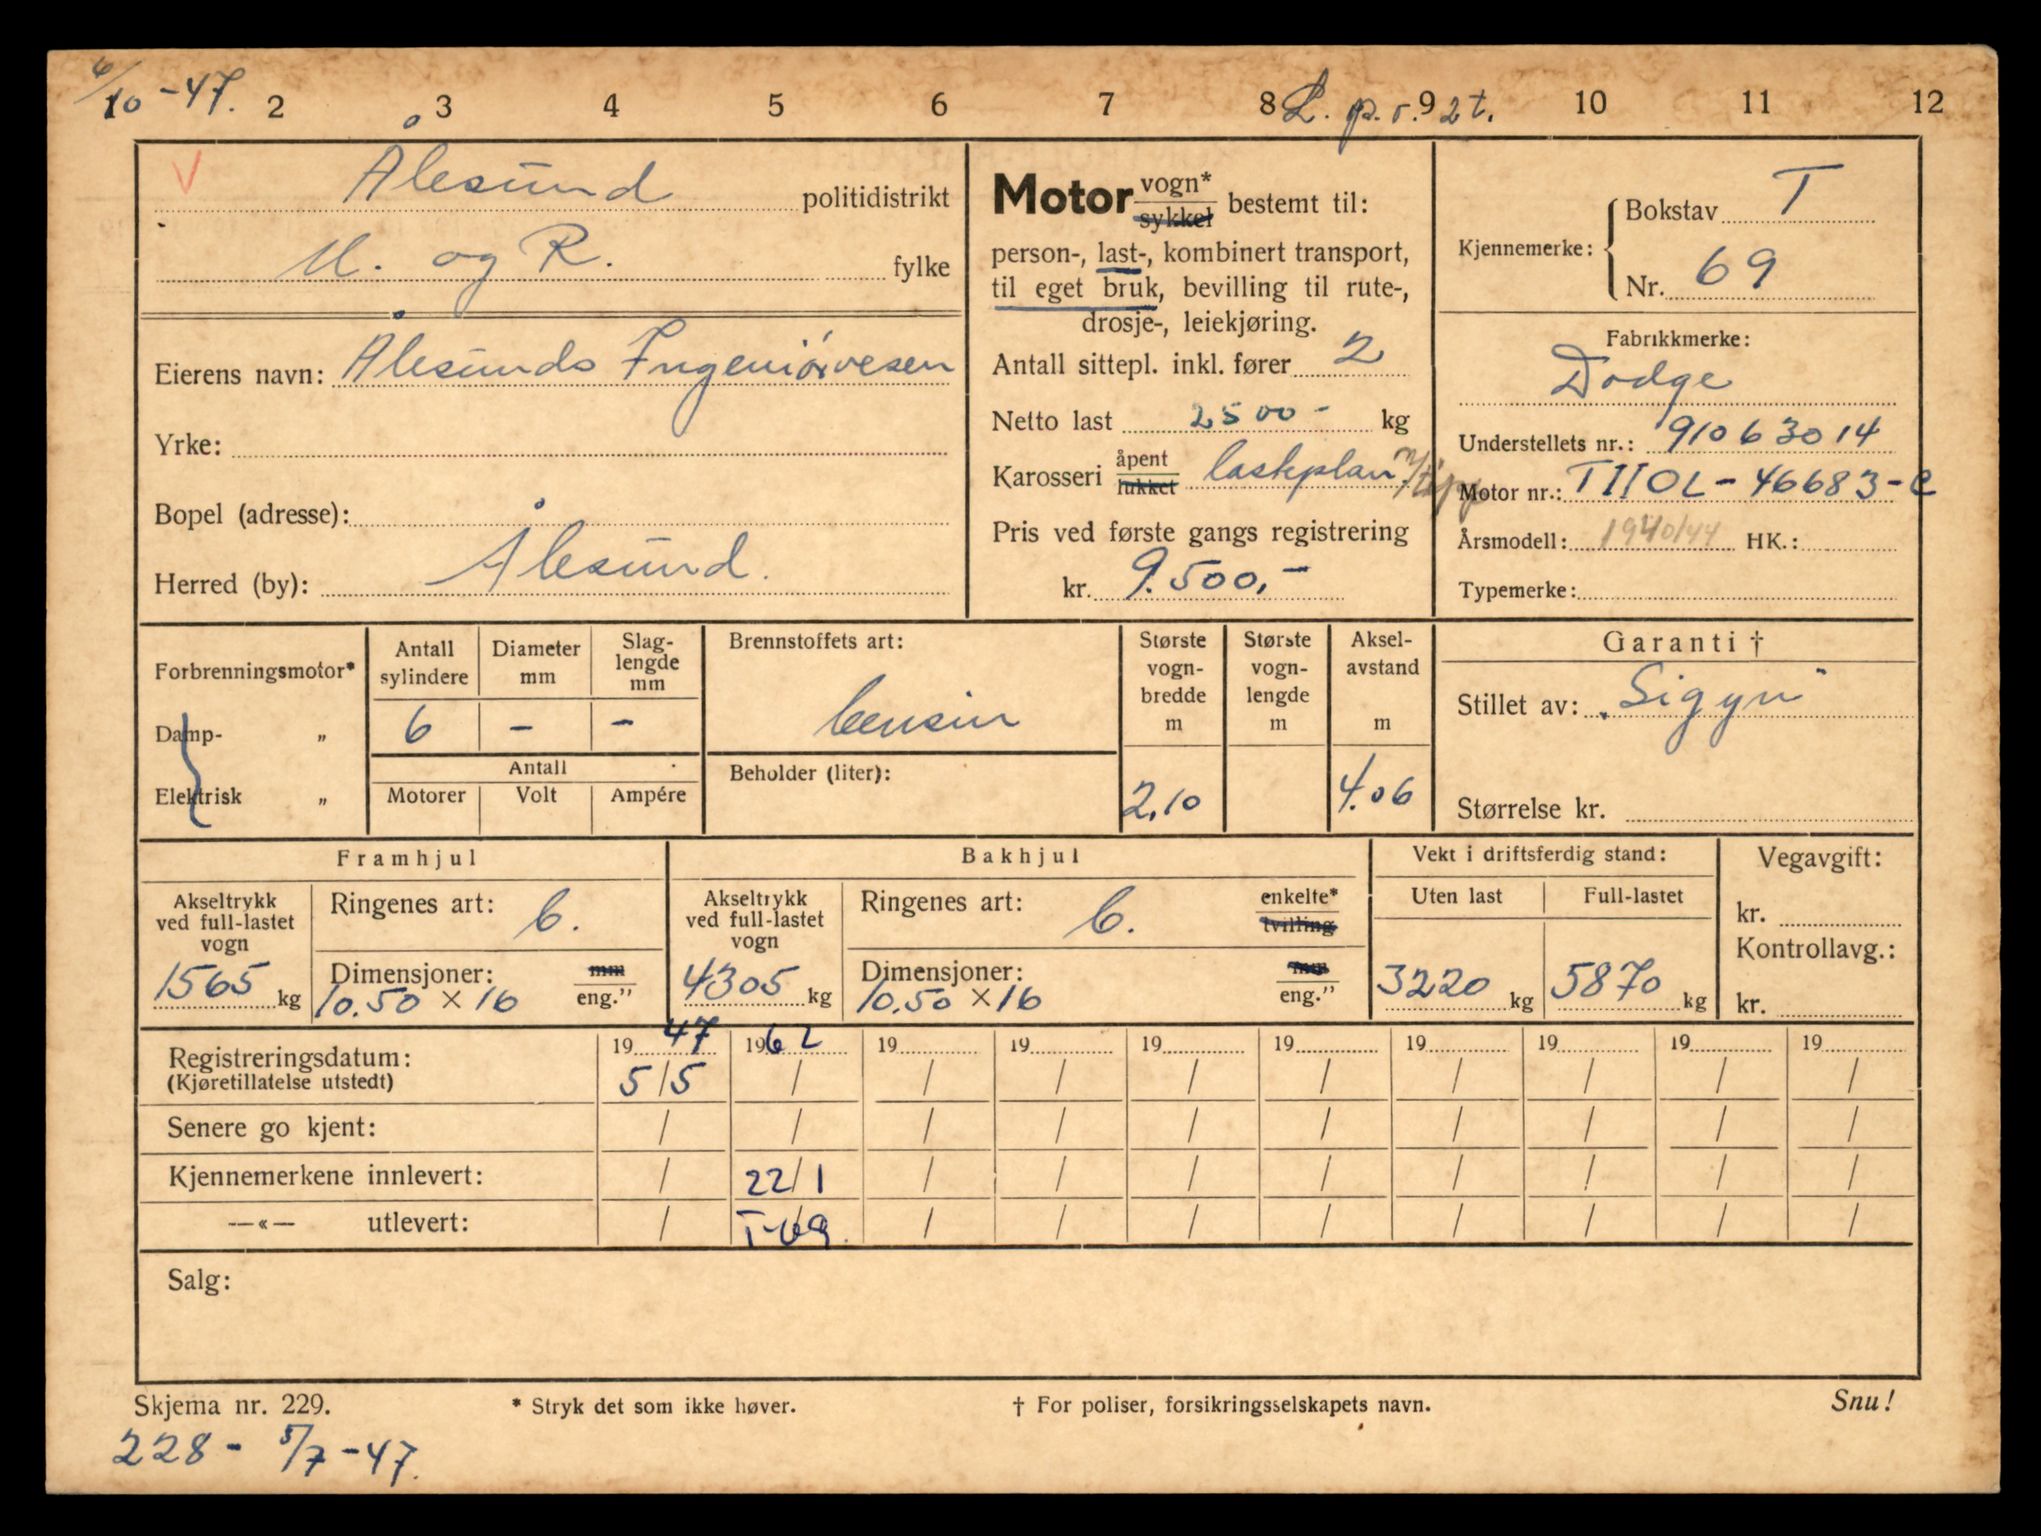 6/10-47.
1 2 3 4 5 6 7 8 9 10 11 12
L. p. r. 2 t.
V
Ålesund politidistrikt
M. og R. fylke
Eierens navn: Ålesunds Ingeniørvesen
Yrke:
Bopel (adresse):
Herred (by): Ålesund.
Motor vogn* sykkel bestemt til:
person-, last-, kombinert transport,
til eget bruk, bevilling til rute-,
drosje-, leiekjøring.
Antall sittepl. inkl. fører 2
Netto last 2500- kg
Karosseri åpent lukket lasteplan m/tipp
Pris ved første gangs registrering
kr. 9.500,-
Kjennemerke: Bokstav T
Nr. 69
Fabrikkmerke:
Dodge
Understellets nr.: 91063014
Motor nr.: T110L-46683-C
Årsmodell: 1940/44 HK.:
Typemerke:
Forbrenningsmotor*
Damp- „
Elektrisk „
Antall sylindere
6
Diameter mm
-
Slag-lengde mm
-
Antall
Motorer Volt Ampére
Brennstoffets art:
bensin
Beholder (liter):
Største vogn-bredde m
2,10
Største vogn-lengde m
Aksel-avstand m
4.06
Garanti †
Stillet av: „Sigyn"
Størrelse kr.
Framhjul
Akseltrykk ved full-lastet vogn
1565 kg
Ringenes art: b.
Dimensjoner: mm eng."
10.50 × 16
Bakhjul
Akseltrykk ved full-lastet vogn
4305 kg
Ringenes art: b. enkelte* tvilling
Dimensjoner: mm eng."
10.50 × 16
Vekt i driftsferdig stand:
Uten last Full-lastet
3220 kg 5870 kg
Vegavgift:
kr.
Kontrollavg.:
kr.
19 47 19 62 19 19 19 19 19 19 19 19
Registreringsdatum: 5/5 / / / / / / / / /
(Kjøretillatelse utstedt)
Senere go kjent: / / / / / / / / / /
Kjennemerkene innlevert: / 22/1 / / / / / / / /
—«— utlevert: / T-69. / / / / / / / /
Salg:
Skjema nr. 229.
* Stryk det som ikke høver.
† For poliser, forsikringsselskapets navn.
Snu!
228- 5/7-47.